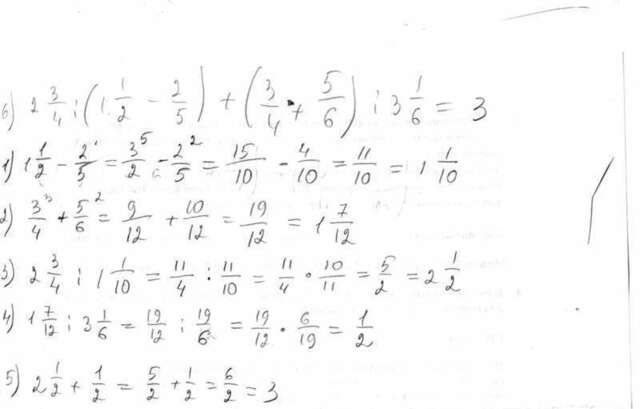 6) 2 3/4 : (1 1/2 - 2/5) + (3/4 + 5/6) : 3 1/6 = 3
1) 1 1/2 - 2/5 = 3/2 ⁵ - 2/5 ² = 15/10 - 4/10 = 11/10 = 1 1/10
2) 3/4 ³ + 5/6 ² = 9/12 + 10/12 = 19/12 = 1 7/12
3) 2 3/4 : 1 1/10 = 11/4 : 11/10 = 11/4 · 10/11 = 5/2 = 2 1/2
4) 1 7/12 : 3 1/6 = 19/12 : 19/6 = 19/12 · 6/19 = 1/2
5) 2 1/2 + 1/2 = 5/2 + 1/2 = 6/2 = 3